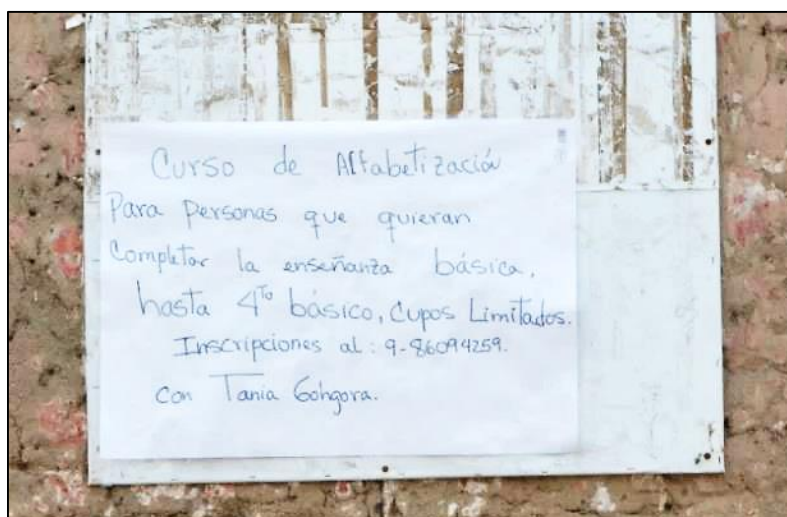 Curso de Alfabetización
Para personas que quieran
Completar la enseñanza básica,
hasta 4to básico, Cupos Limitados.
Inscripciones al: 9-86094259.
con Tania Gohgora.